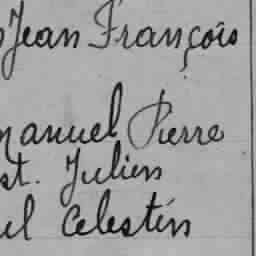 Jean François
manuel Pierre
st. Julien
el Celestin